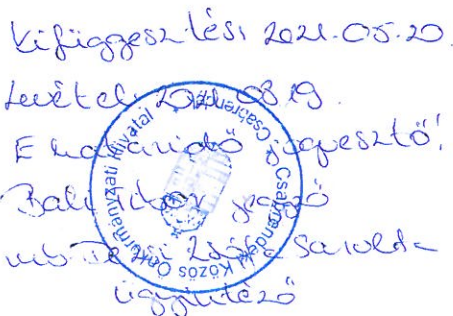 Kifüggesztés: 2021.05.20.
Levétel: 2021.08.19.
E határidő jogvesztő!
Bali Tibor jegyző
Zsófia Sarolta
ügyintéző
Csabrendeki Közös Önkormányzati Hivatal